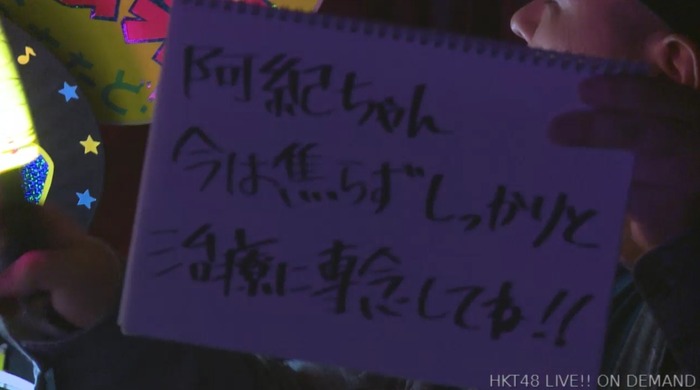 阿紀ちゃん
今は焦らずしっかりと
治療に専念してね!!
HKT48 LIVE!! ON DEMAND